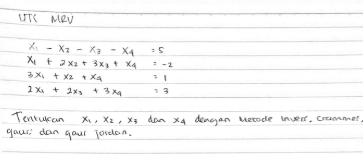 UTS MRV
X₁ - X₂ - X₃ - X₄ = 5
X₁ + 2X₂ + 3X₃ + X₄ = -2
3X₁ + X₂ + X₄ = 1
2X₁ + 2X₃ + 3X₄ = 3
Tentukan X₁, X₂, X₃ dan X₄ dengan Metode Invers, Crammer,
gaus, dan gaus Jordan.